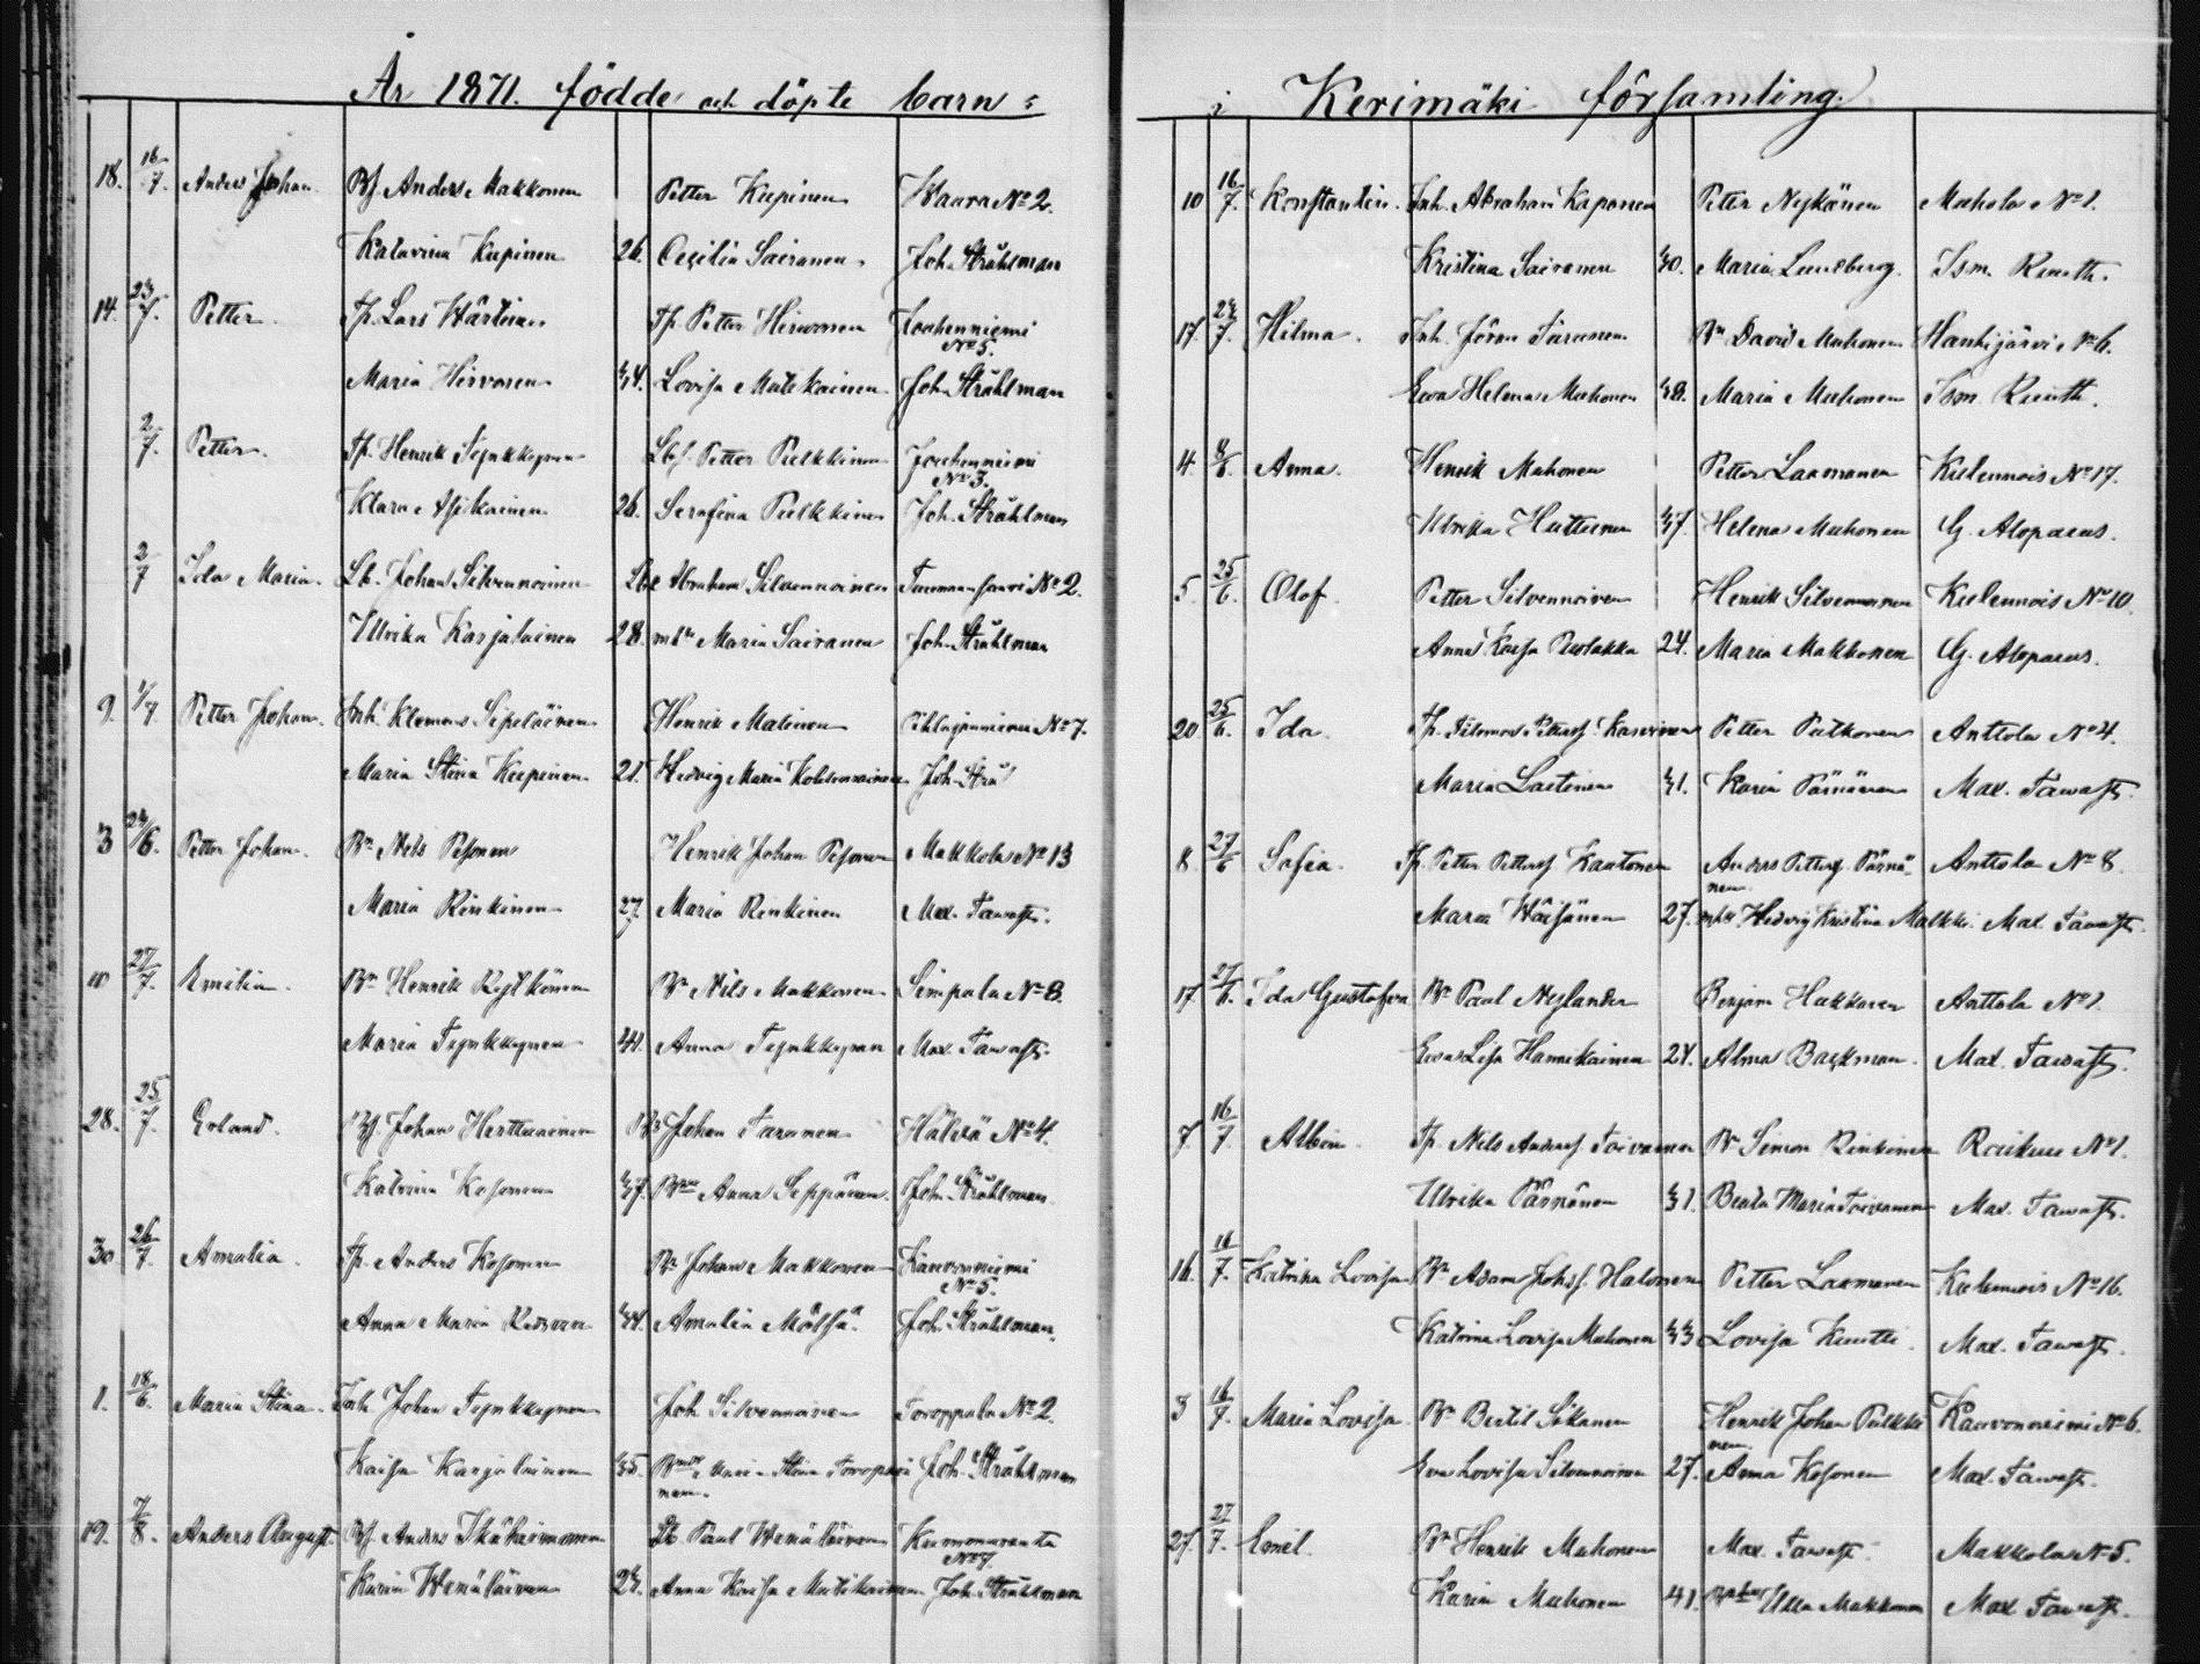 År 1871. födde och döpte barn
18. 16/7. Anders Johan Bs. Anders Makkonen Petter Kupinen Waara No 2.
Katarina Kupinen 26. Cecilia Sairanen Joh. Stråhlman
14. 23/7. Petter Tp. Lars Härtinen Tp. Petter Hirvonen Jouhenniemi No 5.
Maria Hirvonen 44. Lovisa Matikainen Joh. Stråhlman
2/7. Petter. Tp. Henrik Tynkkynen Lbs. Petter Pulkkinen Jouhenniemi No 3.
Klara Asikainen 26. Serafina Pulkkinen Joh. Stråhlman
2/7 Ida Maria. Lb. Johan Silvennoinen Lbr Abraham Silvennoinen No 2.
Ulrika Karjalainen 28. Maria Sairanen Joh. Stråhlman
9. 1/7. Petter Johan. Inh. Klemens Sipeläinen Henrik Malinen Pihlajaniemi No 7.
Maria Stina Kupinen 21. Hedvig Maria Joh. Strå
3 24/6. Petter Johan. Bn Nils Pesonen Henrik Johan Pesonen Makkola No 13
Maria Rinkinen 27. Maria Rinkinen Max. Tawast.
10 27/7. Emilia. Bn Henrik Bn Nils Makkonen Simpala No 8.
Maria Tynkkynen 41. Anna Tynkkynen Max. Tawast.
28. 25/7. Erland. Bs. Johan Herttuainen Johan Taranen Hälvä No 4.
Katrina Kosonen 47. Anna Seppänen Joh. Stråhlman.
30. 26/7. Amalia. Tp. Anders Kosonen Bn Johan Makkonen Kauvonniemi No 5.
Anna Maria 44. Amalia Mälsä Joh. Stråhlman.
1. 18/6. Maria Stina. Inh. Johan Tynkkynen Joh. Silvennoinen Toroppala No 2.
Kaisa Karjalainen 35. Maria Stina Toropainen Joh. Stråhlman
19. 7/8. Anders August. Bs. Anders Ikäheimonen Lb. Paul Wenäläinen Kumonuranta No 7.
Karin Wenäläinen 24. Anna Kaisa Matikainen Joh. Stråhlman
i Kerimäki församling.
10 16/7. Konstantin. Inh. Abraham Kaponen Petter Nyskänen Muhola No 1.
Kristina Sairanen 40. Maria Lundberg. Ism. Ruuth.
17. 24/7. Hilma. Inh. Jöran Taranen Bn David Muhonen Hanhijärvi No 6.
Ewa Helena Muhonen 48. Maria Muhonen Ism. Ruuth.
4. 8/6. Anna. Henrik Muhonen Petter Laamanen Kulennois No 17.
Ulrika Huttunen 47. Helena Muhonen G. Alopaeus.
5. 25/6. Olof. Petter Silvennoinen Henrik Silvennoinen Kulennois No 10.
Anna Kaisa Puolakka 24. Maria Makkonen G. Alopaeus.
20 25/6. Ida. Tp. Filemon Pettersf. Kasurinen Petter Putkonen Anttola No 4.
Maria Laitinen 41. Karin Pärnänen Max. Tawast.
8. 27/6 Sofia. Tp. Petter Pettersf. Kautonen Anders Pettersf. Pärnänen Anttola No 8.
Maria Wäisänen 27. Hedvig Kristina Malkki. Max. Tawast.
17. 27/6. Ida Gustafva Bn Paul Nylander Benjam Hukkanen Anttola No 1.
Ewa Lisa Hannikainen 24. Alma Backman. Max. Tawast.
7. 16/7. Albin. Tp. Nils Andersf. Toivanen Bn Simon Rinkinen Raikuu No 1.
Ulrika Pärnänen 31. Beata Maria Toivanen Max. Tawast.
16. 16/7. Katrina Lovisa Bn Adam Johsf. Halonen Petter Laamanen Kulennois No 16.
Katrina Lovisa Muhonen 43 Lovisa Kuutti. Max. Tawast.
3 16/7. Maria Lovisa. Bn Bertil Sikanen Henrik Johan Pulkkinen Kauvonniemi No 6.
Eva Lovisa Silvennoinen 27. Anna Kosonen Max. Tawast.
27. 27/7. Emil. Bn Henrik Muhonen Max. Tawast. Makkola No 5.
Karin Muhonen 41. Ulla Makkonen Max Tawast.